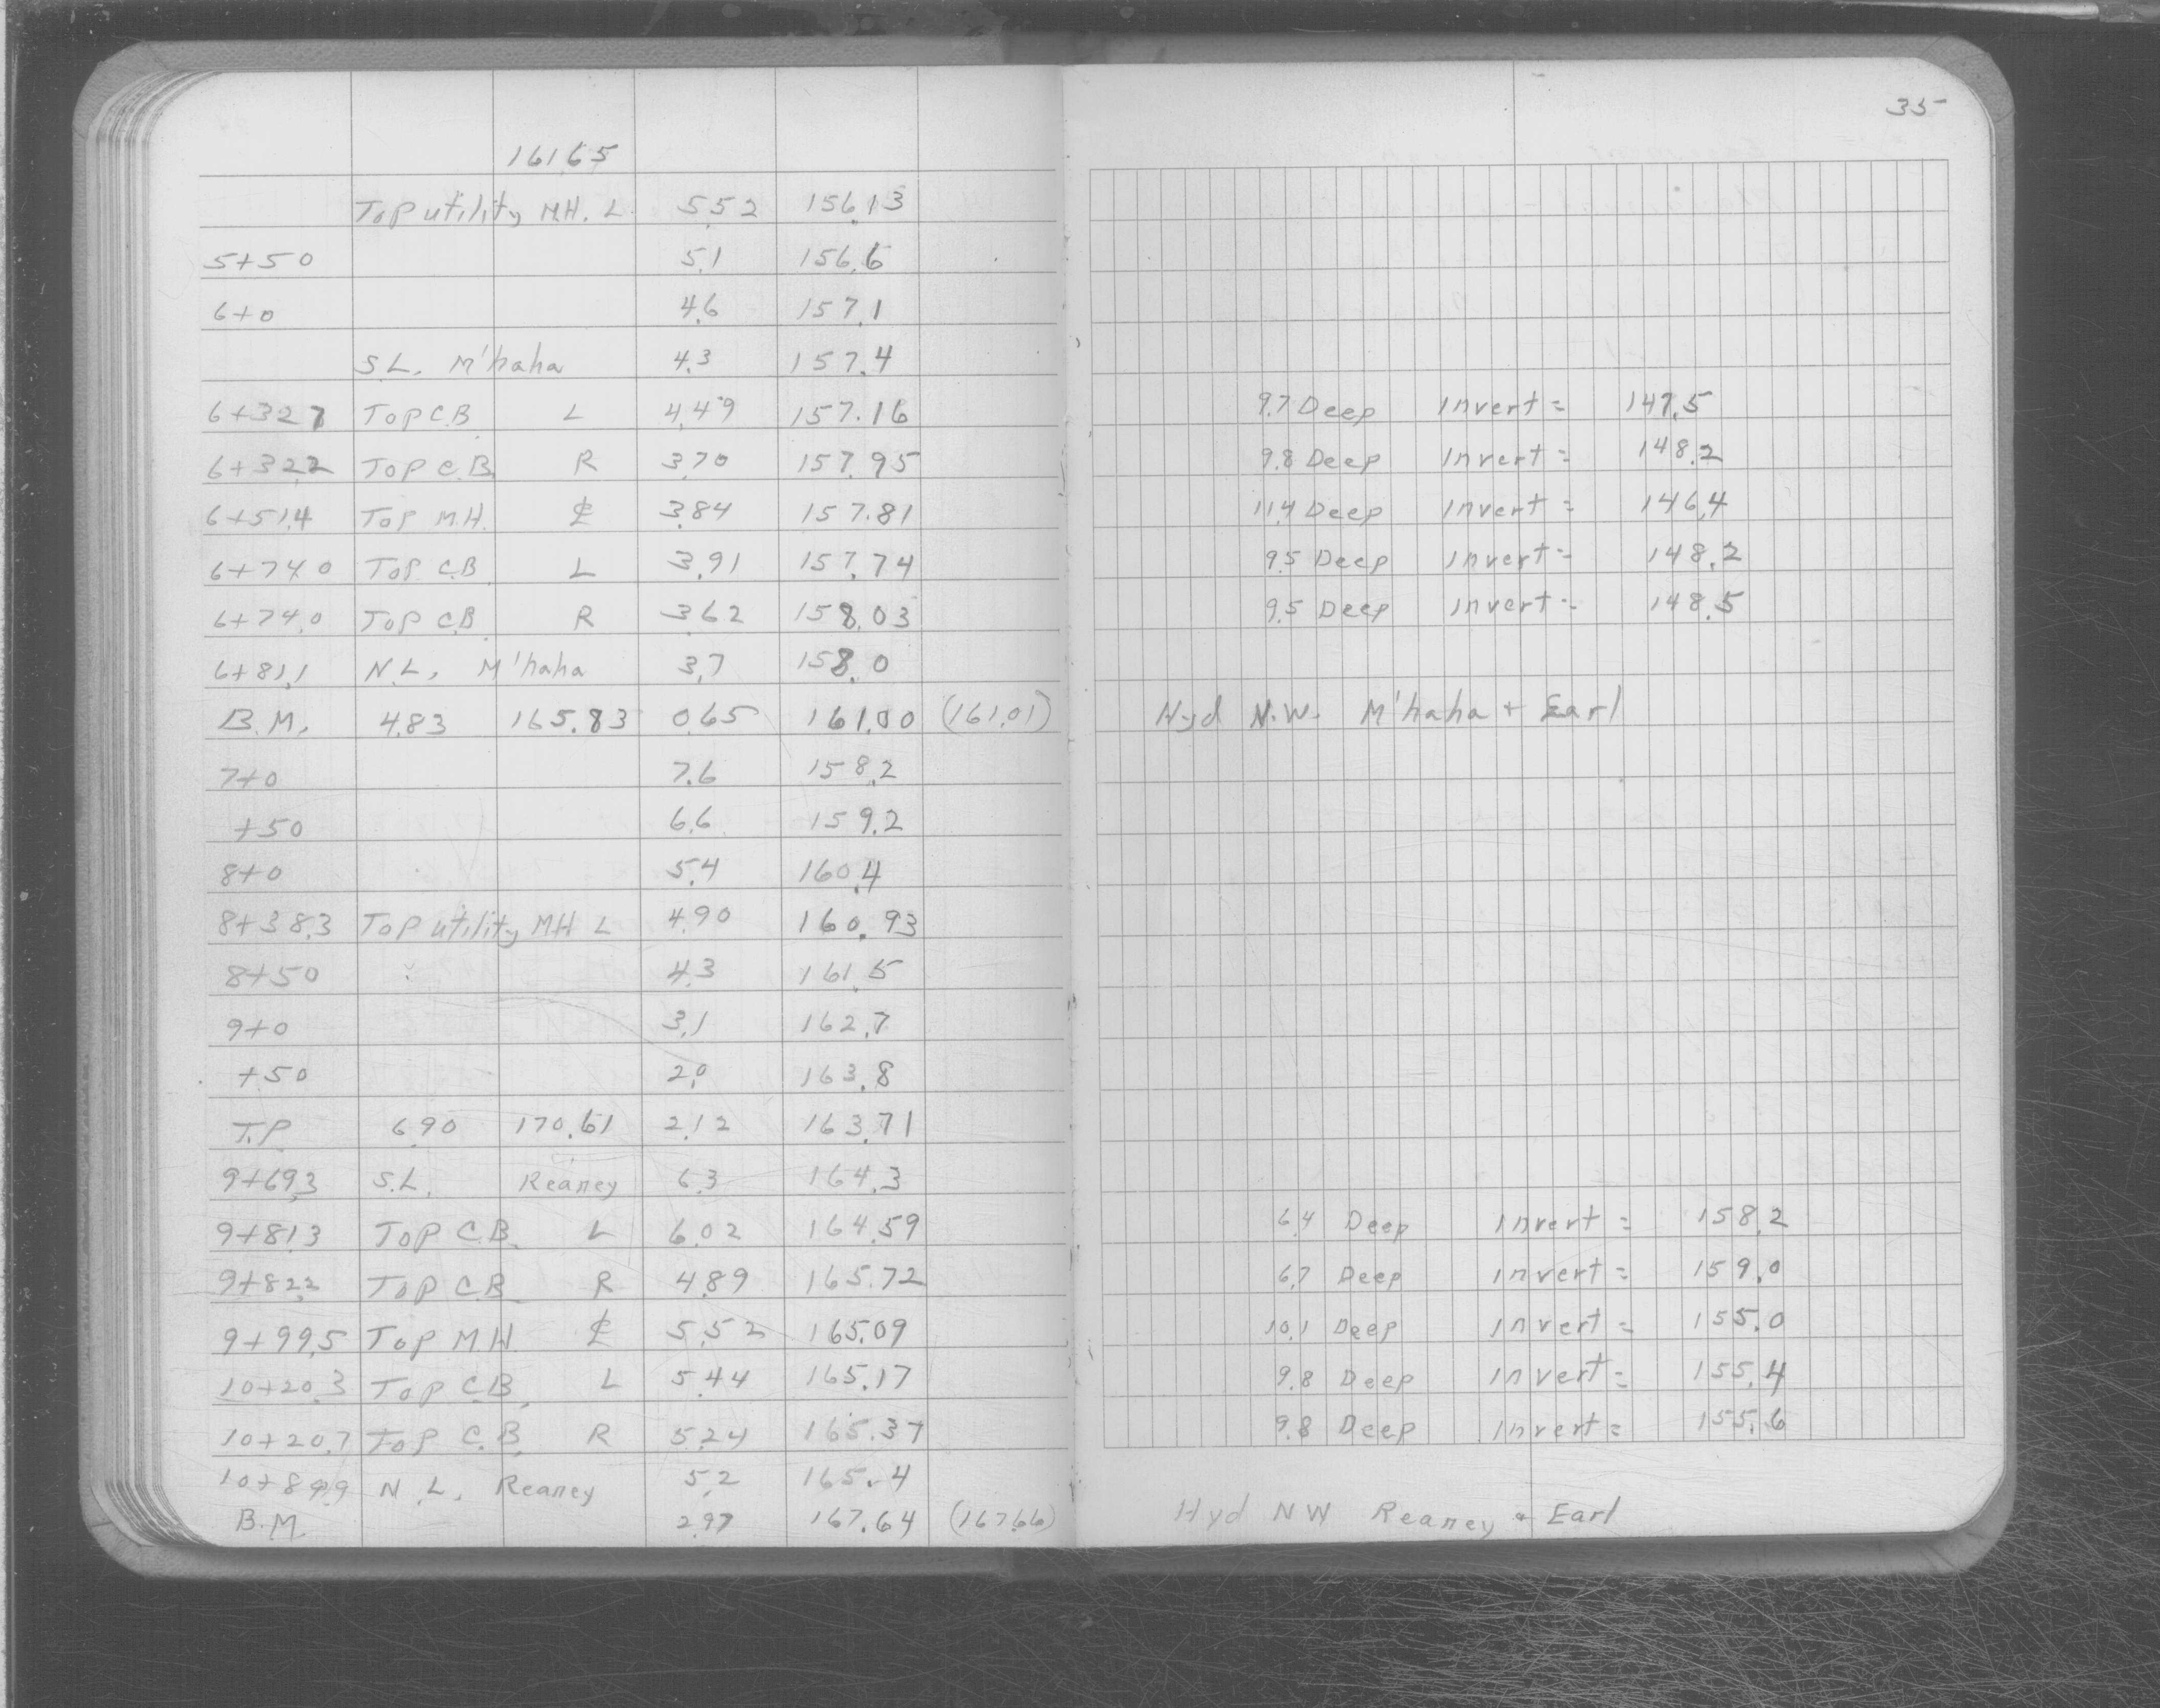 35
161.65
Top utility M.H. L. 5.52 156.13
5+50 5.1 156.6
6+0 4.6 157.1
S.L. M'haha 4.3 157.4
6+32.7 Top C.B. L 4.49 157.16 9.7 Deep Invert = 147.5
6+32.2 Top C.B. R 3.70 157.95 9.8 Deep Invert = 148.2
6+51.4 Top M.H. ℄ 3.84 157.81 11.4 Deep Invert = 146.4
6+74.0 Top C.B. L 3.91 157.74 9.5 Deep Invert = 148.2
6+74.0 Top C.B. R 3.62 158.03 9.5 Deep Invert = 148.5
6+81.1 N.L. M'haha 3.7 158.0
B.M. 4.83 165.83 0.65 161.00 (161.01) Hyd N.W. M'haha + Earl
7+0 7.6 158.2
+50 6.6 159.2
8+0 5.4 160.4
8+38.3 Top utility MH L 4.90 160.93
8+50 4.3 161.5
9+0 3.1 162.7
+50 2.0 163.8
T.P 6.90 170.61 2.12 163.71
9+69.3 S.L. Reaney 6.3 164.3
9+81.3 Top C.B. L 6.02 164.59 6.4 Deep Invert = 158.2
9+82.2 Top C.B. R 4.89 165.72 6.7 Deep Invert = 159.0
9+99.5 Top M.H. ℄ 5.52 165.09 10.1 Deep Invert = 155.0
10+20.3 Top C.B. L 5.44 165.17 9.8 Deep Invert = 155.4
10+20.7 Top C.B. R 5.24 165.37 9.8 Deep Invert = 155.6
N.L. Reaney 5.2 165.4
B.M. 2.97 167.64 (167.66) Hyd NW Reaney + Earl